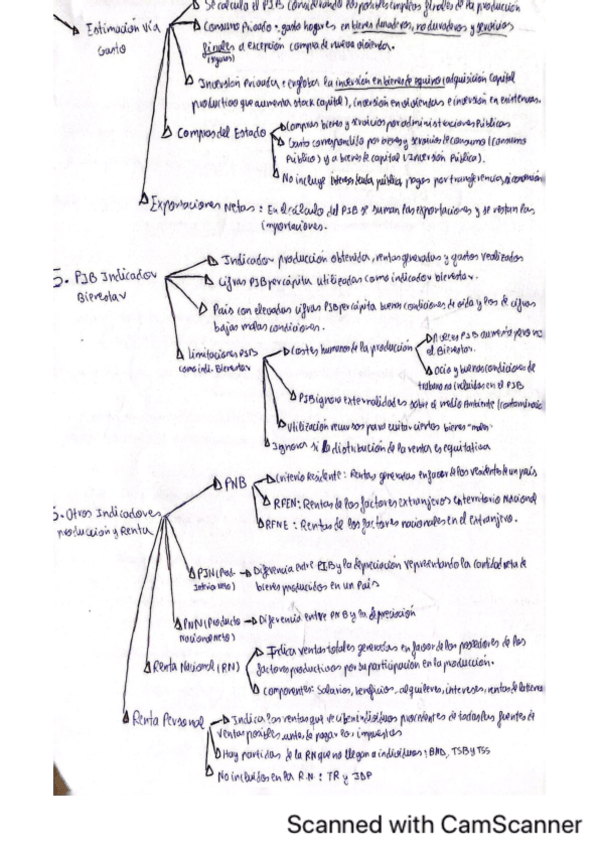 Se calcula el PIB considerando los posibles empleos finales de la producción
Estimación Vía Gasto
Consumo Privado: gasto hogares en bienes duraderos, no duraderos y servicios
finales a excepción compra de nueva vivienda.
Inversión Privada: engloba la inversión en bienes de equipo (adquisición capital
productivo que aumenta stock capital), inversión en viviendas e inversión en existencias.
Compras del Estado
Compras bienes y servicios por administraciones Públicas
Gasto correspondido por bienes y servicios de consumo (consumo
Público) y a bienes de capital (Inversión Pública).
No incluye intereses deuda pública, pagos por transferencias
Exportaciones Netas: En el cálculo del PIB se suman las exportaciones y se restan las
importaciones.
5. PIB Indicador
Bienestar
Indicador producción obtenida, rentas generadas y gastos realizados
Cifras PIB per cápita utilizadas como indicador bienestar.
País con elevadas cifras PIB per cápita buenas condiciones de vida y los de cifras
bajas malas condiciones.
Limitaciones PIB
como indi. Bienestar
Costes humanos de la producción
A veces PIB aumenta pero no
el Bienestar.
Ocio y buenas condiciones de
trabajo no incluidas en el PIB
PIB ignora externalidades sobre el medio Ambiente (contaminación
Utilización recursos para evitar ciertos bienes "males"
Ignora si la distribución de la renta es equitativa
Otros Indicadores
producción y Renta
PNB
Criterio Residente: Rentas generadas en favor de los residentes de un país
RFEN: Rentas de los factores extranjeros en territorio Nacional
RFNE: Rentas de los factores nacionales en el extranjero.
PIN (Prod.
Interio Neto)
Diferencia entre PIB y la depreciación representando la cantidad neta de
bienes producidos en un País
PNN (Producto
Nacional neto)
Diferencia entre PNB y la depreciación
Renta Nacional (RN)
Indica rentas totales generadas en favor de los poseedores de los
factores productivos por su participación en la producción.
Componentes: Salarios, beneficios, alquileres, intereses, rentas de la tierra
Renta Personal
Indica las rentas que reciben individuos procedentes de todas las fuentes de
rentas posibles antes de pagar los impuestos
Hay partidas de la RN que no llegan a individuos: BND, TSB y TSS
No incluidos en la R.N: TR y IDP
Scanned with CamScanner